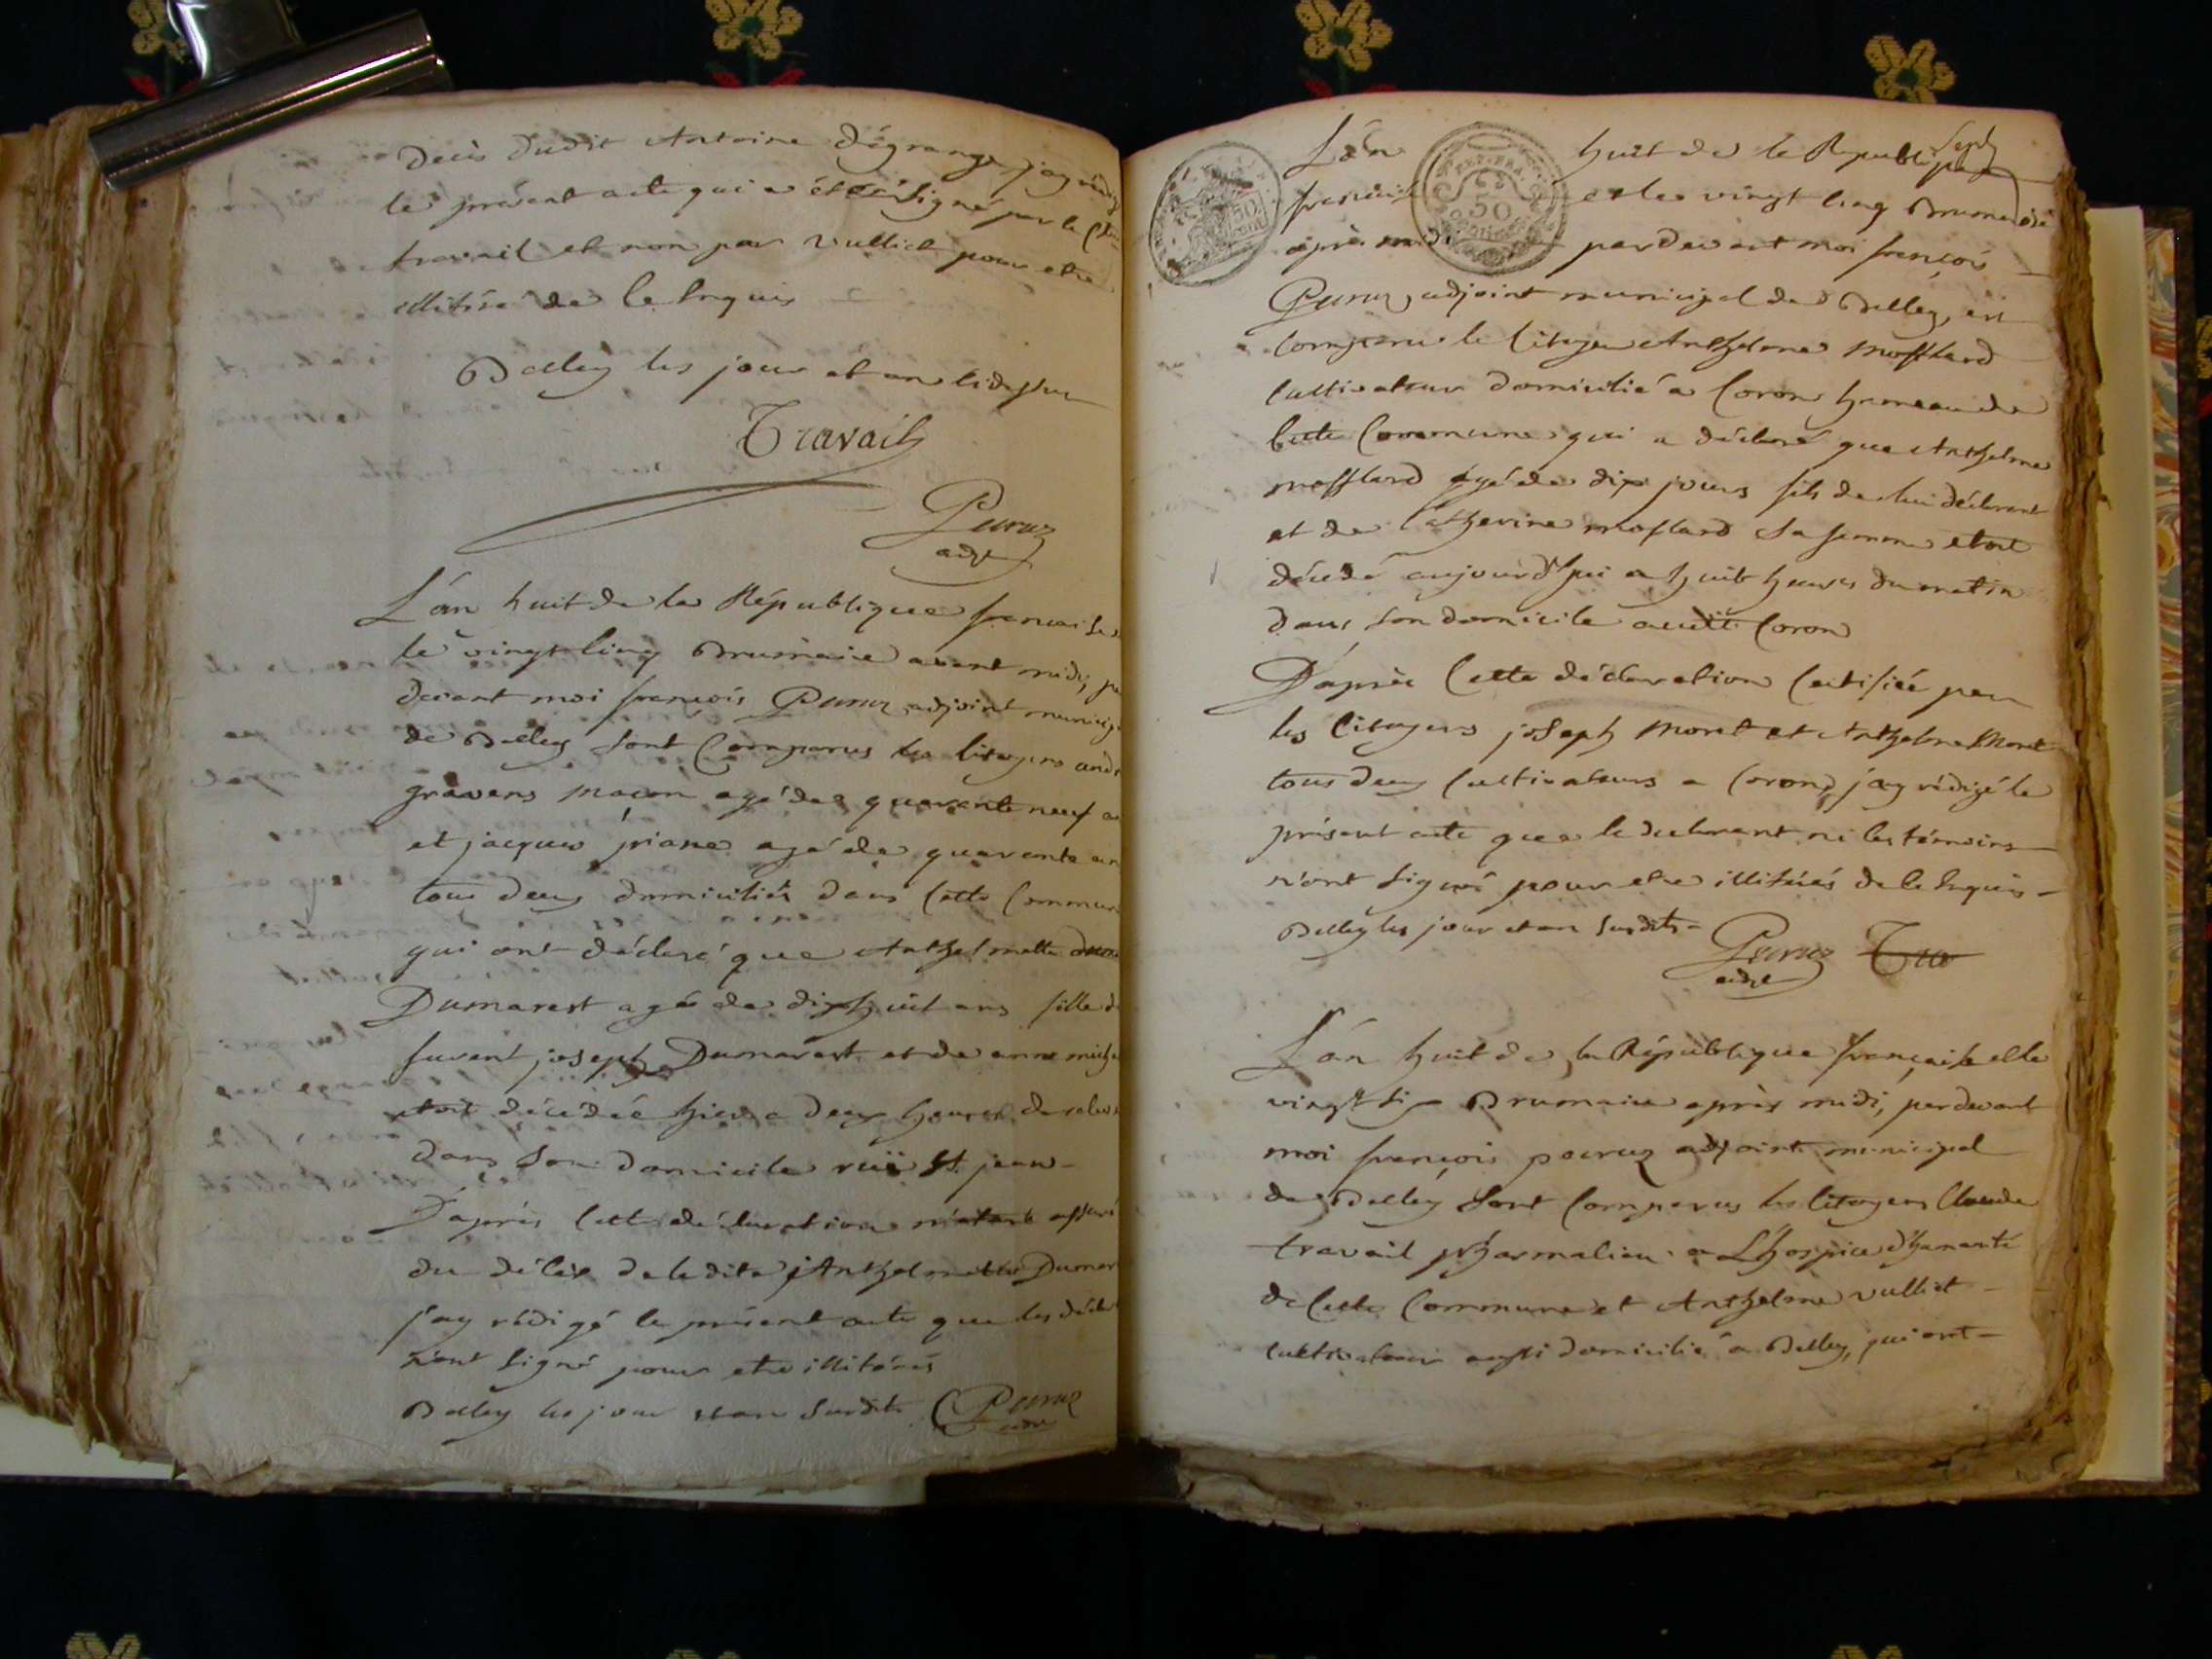 décès dudit Antoine dégrange, jay
le présent acte qui a été signé par le
travail et non par vulliet pour etre
illitéré de le Enquis
Belley les jour et an cidessus
Travail
Peruz
adjt
L'án huit de la République francaise
le vingt cinq Brumaire avant midi, par
devant moi françois Peruz adjoint
de Belley sont Comparus les citoyens
gravens maçon agé de quarante neuf
et jacques agé de quarante
tous deux domiciliés dans Cette
qui ont déclaré que Anthelmette
Dumarest agée de dixhuit ans fille
joseph Dumarest et de anne
etoit décédée hier a deux heures
dans Son domicile ruë St. jean
D'après Cette déclaration m'etant assuré
du décès de ladite Anthelmette
j'ay rédigé le présent acte que les
n'ont signé pour etre illitérés
Belley les jour et an Susdits Peruz
adjt
L'an huit de la République
française et le vingt cinq Brumaire
après midi pardevant moi françois
Peruz, adjoint municipal de Belley, est
Comparu le Citoyen Anthelme moffland
Cultivateur domicilié a Coron hameau de
Cette Commune qui a déclaré que Anthelme
moffland agé de dix jours fils de lui déclarant
et de Catherine moffland Sa femme etoit
décédé aujourd'hui a huit heures du matin
dans Son domicile audit Coron
D'après Cette déclaration Certifiée par
les Citoyens joseph moret et Anthelme moret
tous deux Cultivateurs a Coron, j'ay rédigé le
présent acte que le declarant ni les témoins
n'ont Signé pour etre illitérés de le Enquis
Belley les jour et an Susdits
Peruz
adjt
Tra
L'an huit de la République française et le
vingt Six Brumaire après midi, pardevant
moi françois peruz adjoint municipal
de Belley Sont Comparus les Citoyens Claude
travail pharmacien a L'hospice d'humanité
de Cette Commune et Anthelme vulliet
Cultivateur aussi domicilié a Belley, qui ont